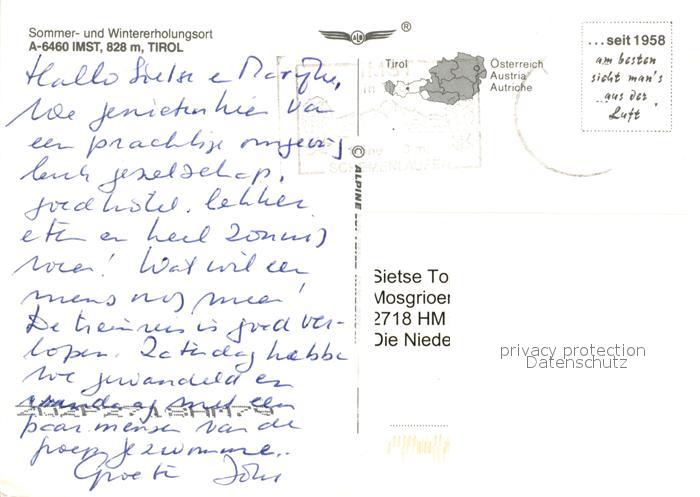 Sommer- und Wintererholungsort
A-6460 IMST, 828 m, TIROL
Hallo Sietse e Marijke,
We genieten hier van
een prachtige omgeving
leuk gezelschap,
goed hotel. lekker
eten en heel zonnig
weer! Wat wil een
mens nog meer!
De treinreis is goed ver-
lopen. Zaterdag hebbe
we gewandeld en
vandaag met een
paar mensen van de
groep gezwommen.
Groeten
®
Tirol
Österreich
Austria
Autriche
IMST
...seit 1958
am besten
sieht man's
...aus der
Luft
© ALPINE
Sietse To
Mosgrioer
2718 HM
Die Niede
privacy protection
Datenschutz